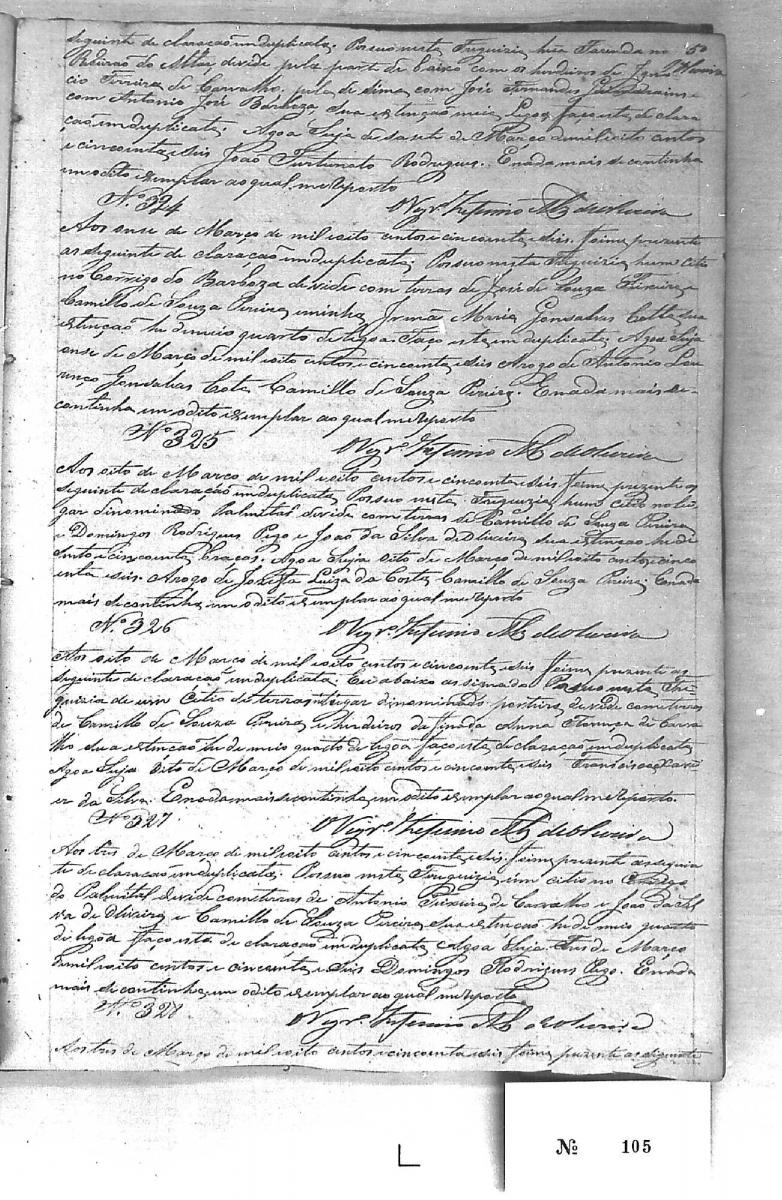 seguinte declaração induplicata. Possuo nesta Freguizia huã Fazenda no 50
Ribeirão do devide pela parte de baixo com os herdeiros de Igna
cio Ferreira de Carvalho, pela de sima com José Fernandes
com Antonio José Barboza sua extenção meia Legoa faço esta decla
ração induplicata. Agoa Suja de sete de Março demil oito centos
e cincoenta e seis João Furtunato Rodrigues. Enada mais se continha
em o dito exemplar ao qual me reporto
Nº 324 O Vigrº M. de Oliveira
Aos onse de Março de mil oito centos e cincoenta e seis foime prezente
as seguinte declaração induplicata. Possuo nesta Freguizia hum citio
no Corrigo do Barboza devide com terras de José de Souza Teixeira e
Camillo de Souza Pereira eminha Irmã Maria Gonsalves Cotta, sua
extenção he demeio quarto de legoa. Faço esta em duplicata. Agoa Suja
onse de Março de mil oito centos e cincoenta e seis Arogo de Antonio Lou
renço Gonsalves Cota Camillo de Souza Pereira. Enada mais se
continha em o dito exemplar ao qual me reporto
Nº 325 O Vigrº M. de Oliveira
Aos oito de Março de mil oito centos e cincoenta e seis foime prezente as
seguinte declaração induplicata Possuo nesta Freguizia hum Citio no lu
gar dinominado Palmital devide com terras de Camillo de Souza Pereira
e Domingos Rodrigues Pego e João da Silva de Oliveira sua extenção he de
sento e cincoenta braças. Agoa Suja oito de Março de mil oito centos e cinco
enta e seis. Arogo de Luiza da Costa Camillo de Souza Pereira. Enada
mais se continha em o dito exemplar ao qual me reporto
Nº 326 O Vigrº M. de Oliveira
Aos oito de Março de mil oito centos e cincoenta e seis foime prezente as
seguinte declaração induplicata. Eu abaixo assinado Possuo nesta Fre
guizia de um Citio de terras no lugar dinominado devide com terras
de Camillo de Souza Pereira e herdeiros da finada Anna de Carva
lho sua extenção he de meio quarto de legoa faço esta declaração induplicata
Agoa Suja oito de Março de mil oito centos e cincoenta e seis Francisco Xavi
er da Silva. Enada mais se continha em o dito exemplar ao qual me reporto.
Nº 327 O Vigrº M. de Oliveira
Aos tres de Março de mil oito centos e cincoenta e seis foime prezente as seguin
te declaração induplicata. Possuo nesta Freguizia um citio no
do Palmital devide com terras de Antonio Teixeira de Carvalho e João da Sil
va de Oliveira e Camillo de Souza Pereira sua extenção he de meio quarto
de legoa faço esta declaração induplicata Agoa Suja Tres de Março
demil oito centos e cincoenta e seis Domingos Rodrigues Pego. Enada
mais se continha em o dito exemplar ao qual me reporto
Nº 328 O Vigrº M. de Oliveira
Aos tres de Março de mil oito centos e cincoenta e seis foime prezente as seguinte
Nº 105